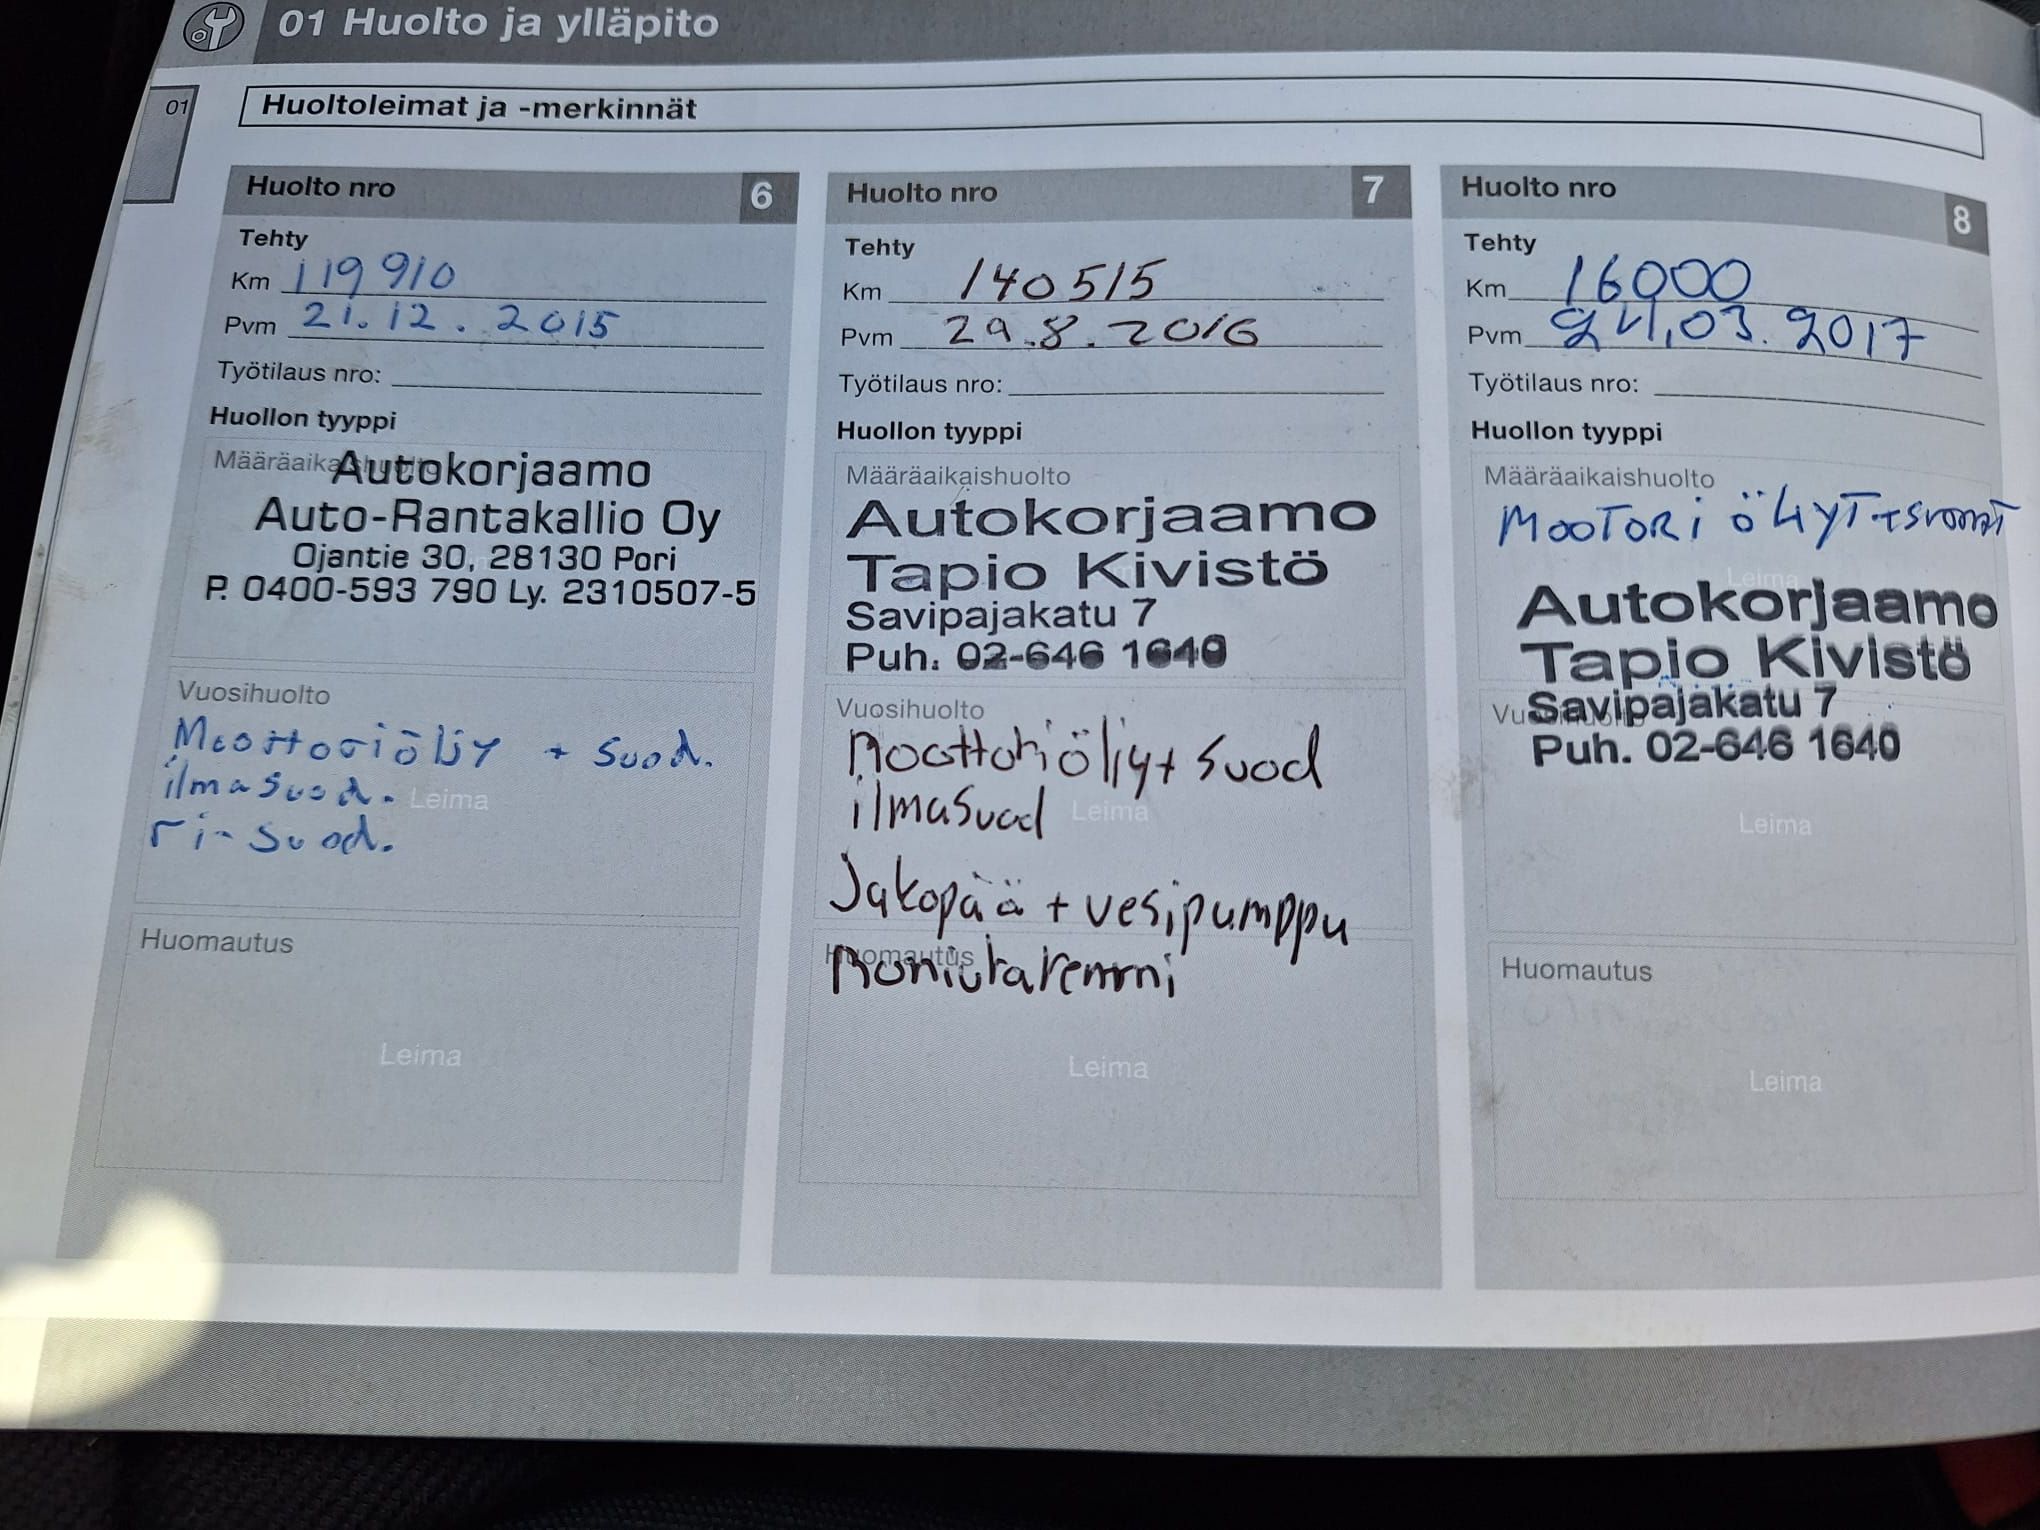 01 Huolto ja ylläpito
01
Huoltoleimat ja -merkinnät
Huolto nro 6
Tehty
Km 119 910
Pvm 21.12.2015
Työtilaus nro:
Huollon tyyppi
Määräaikaishuolto
Autokorjaamo
Auto-Rantakallio Oy
Ojantie 30, 28130 Pori
P. 0400-593 790 Ly. 2310507-5
Vuosihuolto
Moottoriöljy + suod.
ilmasuod.
Leima
ri-suod.
Huomautus
Leima
Huolto nro 7
Tehty
Km 140 515
Pvm 29.8.2016
Työtilaus nro:
Huollon tyyppi
Määräaikaishuolto
Autokorjaamo
Tapio Kivistö
Savipajakatu 7
Puh. 02-646 1640
Vuosihuolto
Moottoriöljy + suod
ilmasuod
Leima
Jakopää + vesipumppu
Huomautus
Moniurahihna
Leima
Huolto nro 8
Tehty
Km 16000
Pvm 24.03.2017
Työtilaus nro:
Huollon tyyppi
Määräaikaishuolto
MOOTORI ÖLJYT +
Leima
Autokorjaamo
Tapio Kivistö
Savipajakatu 7
Vuosihuolto
Puh. 02-646 1640
Leima
Huomautus
Leima